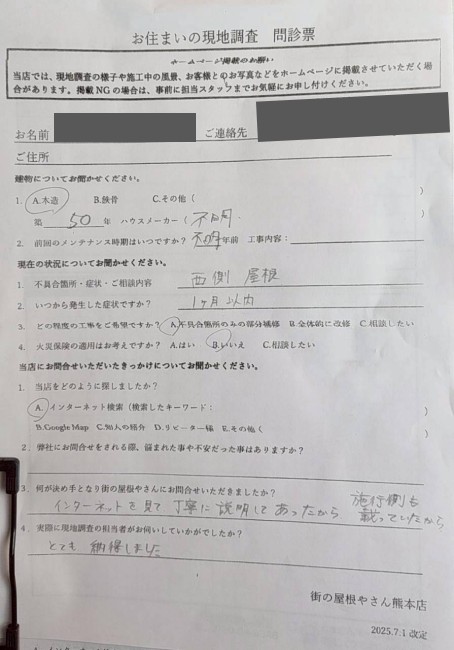 お住まいの現地調査 問診票
ホームページ掲載のお願い
当店では、現地調査の様子や施工中の風景、お客様とのお写真などをホームページに掲載させていただく場
合があります。掲載NGの場合は、事前に担当スタッフまでお気軽にお申し付けください。
お名前 ご連絡先
ご住所
建物についてお聞かせください。
1. A.木造 B.鉄骨 C.その他( )
築 50 年 ハウスメーカー( 不明 )
2. 前回のメンテナンス時期はいつですか? 不明 年前 工事内容:
現在の状況についてお聞かせください。
1. 不具合箇所・症状・ご相談内容 西側 屋根
2. いつから発生した症状ですか? 1ヶ月以内
3. どの程度の工事をご希望ですか? A.不具合箇所のみの部分補修 B.全体的に改修 C.相談したい
4. 火災保険の適用はお考えですか? A.はい B.いいえ C.相談したい
当店にお問合せいただいたきっかけについてお聞かせください。
1. 当店をどのように探しましたか?
A. インターネット検索(検索したキーワード: )
B.Google Map C.知人の紹介 D.リピーター様 E.その他( )
2. 弊社にお問合せをされる際、悩まれた事や不安だった事はありますか?
3. 何が決め手となり街の屋根やさんにお問合せいただきましたか?
インターネットを見て丁寧に説明してあったから 施行側も
載っていたから
4. 実際に現地調査の担当者がお伺いしていかがでしたか?
とても納得しました
街の屋根やさん熊本店
2025.7.1 改定